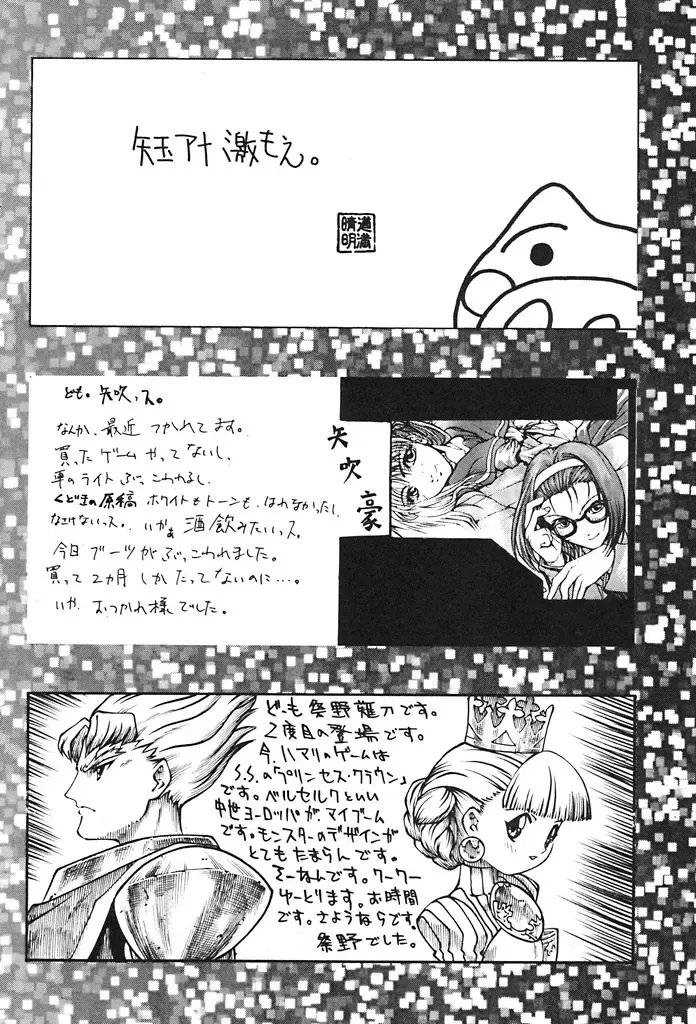 短アナ 激もえ。
道満
晴明
ども。矢吹っス。
なんか、最近 つかれてます。
買ったゲーム やってないし、
車のライト ぶっこわれるし、
くど王の原稿 ホワイトもトーンも、はれなかったし、
なさけないっス。いやぁ 酒飲みたいっス。
今日 ブーツが ぶっこわれました。
買って 2ヵ月 しかたってないのに…。
いや、おつかれ様でした。
矢吹豪
ども 祭野薙刀です。
2度目の登場です。
今、ハマリのゲームは
S.S.の「プリンセス・クラウン」
です。ベルセルクといい
中世ヨーロッパが、マイブーム
です。モンスターのデザインが
とてもたまらんです。
そーなんです。クークー
ゆーとります。お時間
です。さようならです。
祭野でした。